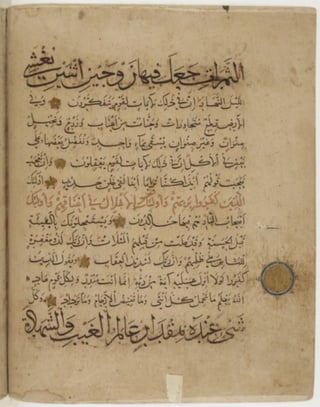 الثمرات جعل فيها زوجين اثنين يغشي
الليل النهار ان في ذلك لآيات لقوم يتفكرون وفي
الأرض قطع متجاورات وجنات من أعناب وزرع ونخيل
صنوان وغير صنوان يسقى بماء واحد ونفضل بعضها على
بعض في الأكل إن في ذلك لآيات لقوم يعقلون وإن تعجب
فعجب قولهم أئذا كنا ترابا أئنا لفي خلق جديد أولئك
الذين كفروا بربهم وأولئك الأغلال في أعناقهم وأولئك
أصحاب النار هم فيها خالدون ويستعجلونك بالسيئة
قبل الحسنة وقد خلت من قبلهم المثلات وإن ربك لذو مغفرة
للناس على ظلمهم وإن ربك لشديد العقاب ويقول الذين
كفروا لولا أنزل عليه آية من ربه إنما أنت منذر ولكل قوم هاد
الله يعلم ما تحمل كل أنثى وما تغيض الأرحام وما تزداد وكل
شيء عنده بمقدار عالم الغيب والشهادة